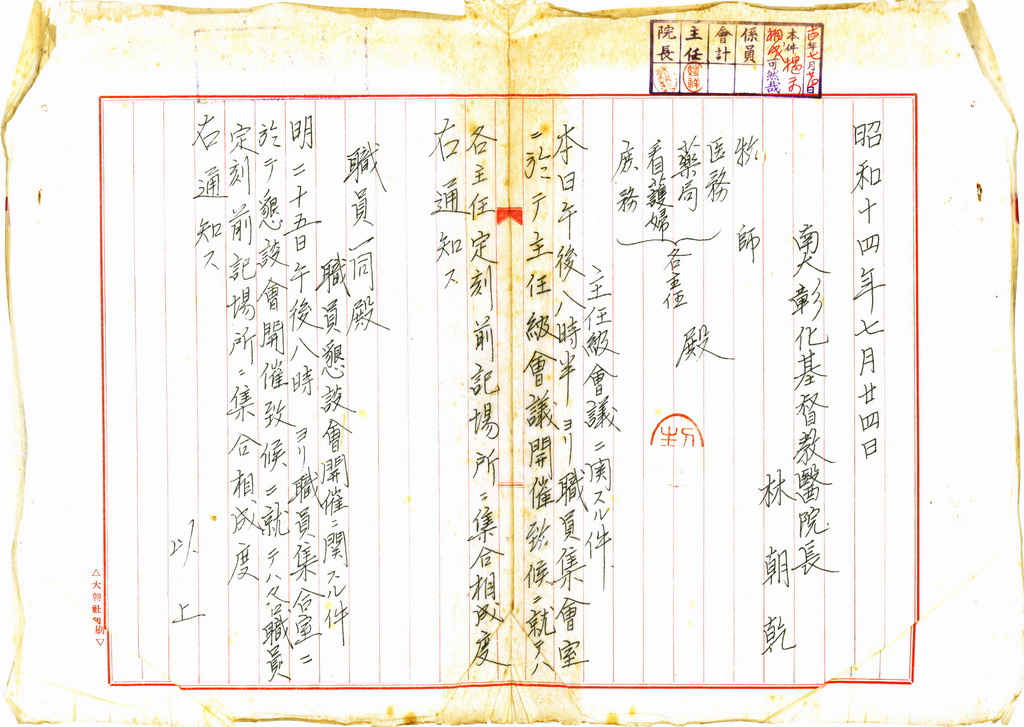 十四年七月廿四日
本件掲示
相成可然哉
係員
會計
主任
院長
昭和十四年七月廿四日
南大彰化基督教醫院長
林朝乾
牧師
医務
薬局
看護婦
庶務
各主任
殿
主任級會議ニ関スル件
本日午後八時半ヨリ職員集會室
ニ於テ主任級會議開催致候ニ就テハ
各主任定刻前記場所ニ集合相成度
右通知ス
職員一同殿
職員懇談會開催ニ関スル件
明二十五日午後八時ヨリ職員集合室ニ
於テ懇談會開催致候ニ就テハ各職員
定刻前記場所ニ集合相成度
右通知ス
以上
△大朝社印刷▽